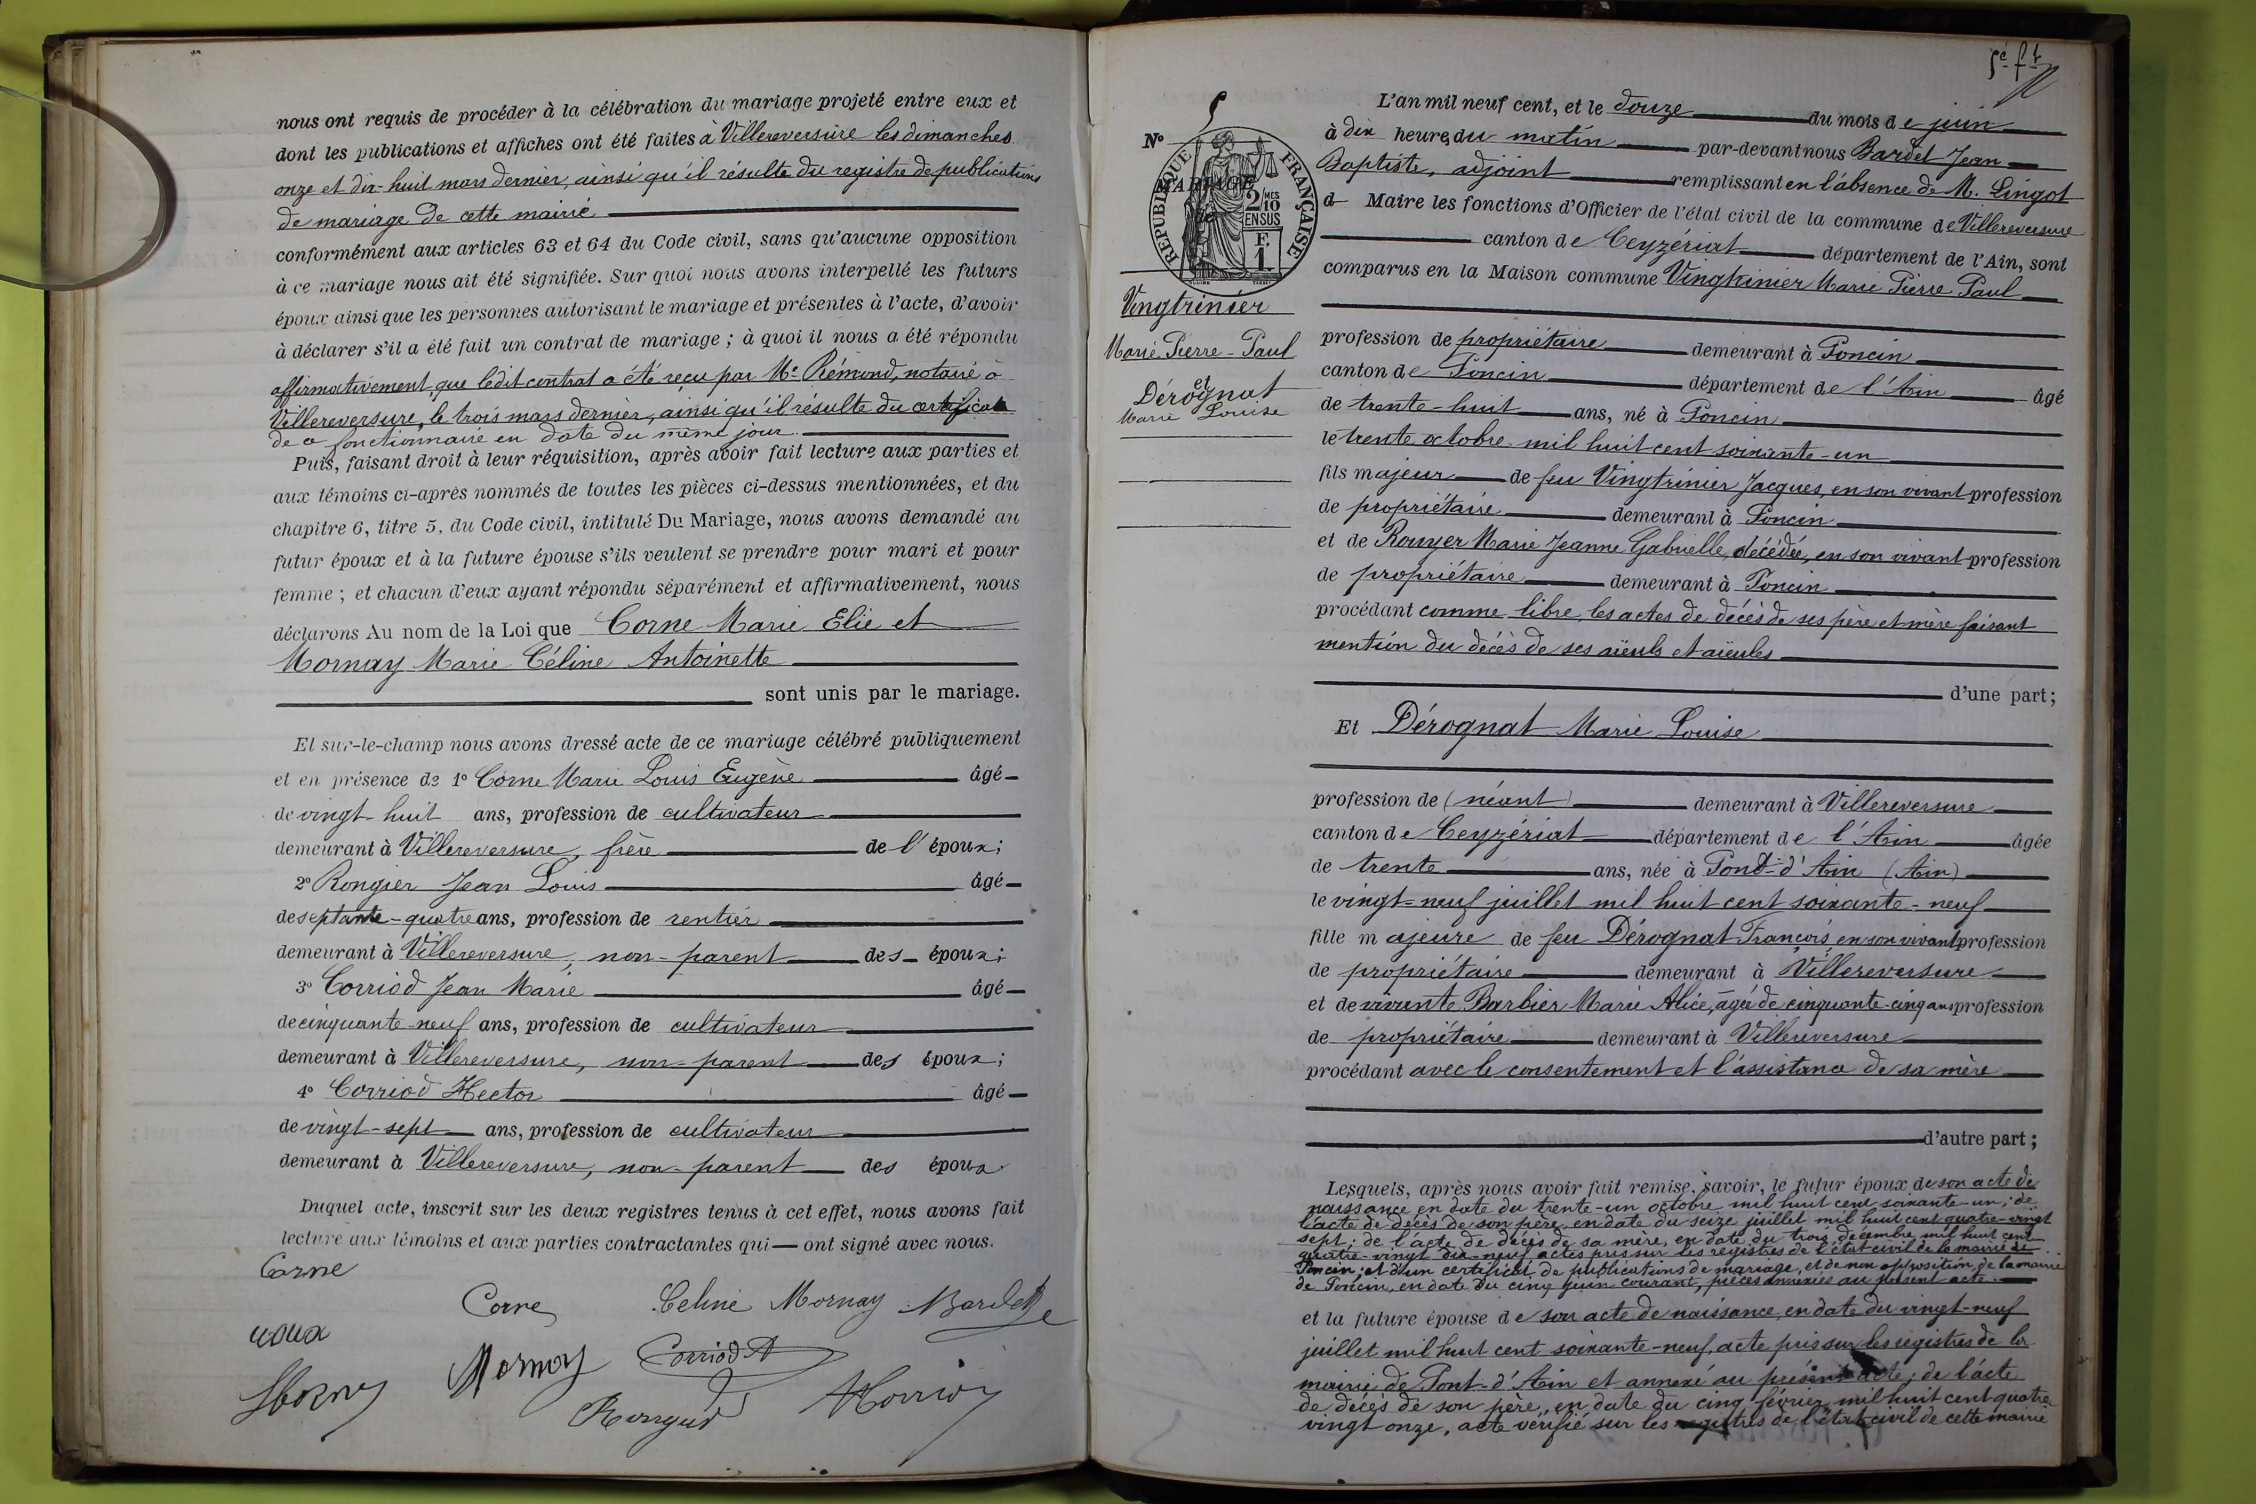 nous ont requis de procéder à la célébration du mariage projeté entre eux et
dont les publications et affiches ont été faites à Villereversure les dimanches
onze et dix-huit mars dernier, ainsi qu'il résulte du registre de publications
de mariage de cette mairie
conformément aux articles 63 et 64 du Code civil, sans qu'aucune opposition
à ce mariage nous ait été signifiée. Sur quoi nous avons interpellé les futurs
époux ainsi que les personnes autorisant le mariage et présentes à l'acte, d'avoir
à déclarer s'il a été fait un contrat de mariage ; à quoi il nous a été répondu
affirmativement, que ledit contrat a été reçu par Me Rémond, notaire à
Villereversure, le trois mars dernier, ainsi qu'il résulte du certificat
de ce fonctionnaire en date du même jour.
Puis, faisant droit à leur réquisition, après avoir fait lecture aux parties et
aux témoins ci-après nommés de toutes les pièces ci-dessus mentionnées, et du
chapitre 6, titre 5, du Code civil, intitulé Du Mariage, nous avons demandé au
futur époux et à la future épouse s'ils veulent se prendre pour mari et pour
femme ; et chacun d'eux ayant répondu séparément et affirmativement, nous
déclarons Au nom de la Loi que Corne Marie Elie et
Mornay Marie Céline Antoinette
sont unis par le mariage.
Et sur-le-champ nous avons dressé acte de ce mariage célébré publiquement
et en présence de 1º Corne Marie Louis Eugène âgé
de vingt-huit ans, profession de cultivateur
demeurant à Villereversure, frère de l'époux;
2º Rongier Jean Louis âgé
de septante-quatre ans, profession de rentier
demeurant à Villereversure, non-parent des époux;
3º Corriod Jean Marie âgé
de cinquante-neuf ans, profession de cultivateur
demeurant à Villereversure, non-parent des époux;
4º Corriod Hector âgé
de vingt-sept ans, profession de cultivateur
demeurant à Villereversure, non-parent des époux
Duquel acte, inscrit sur les deux registres tenus à cet effet, nous avons fait
lecture aux témoins et aux parties contractantes qui ont signé avec nous.
Corne
Corne Celine Mornay Bardet
Mornay Corriod
5
Nº
MARIAGE
de
REPUBLIQUE FRANÇAISE
2/10 MES
EN SUS
F.
1
Vingtrinier
Marie Pierre-Paul
et
Dérognat
Marie Louise
L'an mil neuf cent, et le douze du mois de juin
à dix heures du matin par-devant nous Bardet Jean
Baptiste, adjoint remplissant en l'absence de M. Lingot
d Maire les fonctions d'Officier de l'état civil de la commune de Villereversure
canton de Ceyzériat département de l'Ain, sont
comparus en la Maison commune Vingtrinier Marie Pierre Paul
profession de propriétaire demeurant à Poncin
canton de Poncin département de l'Ain âgé
de trente-huit ans, né à Poncin
le trente octobre mil huit cent soixante-un
fils majeur de feu Vingtrinier Jacques, en son vivant profession
de propriétaire demeurant à Poncin
et de Rouyer Marie Jeanne Gabrielle, décédée, en son vivant profession
de propriétaire demeurant à Poncin
procédant comme libre, les actes de décès de ses père et mère faisant
mention du décès de ses aïeuls et aïeules
d'une part;
Et Dérognat Marie Louise
profession de (néant) demeurant à Villereversure
canton de Ceyzériat département de l'Ain âgée
de trente ans, née à Pont-d'Ain (Ain)
le vingt-neuf juillet mil huit cent soixante-neuf
fille majeure de feu Dérognat François, en son vivant profession
de propriétaire demeurant à Villereversure
et de vivante Barbier Marie Alice, âgée de cinquante-cinq ans profession
de propriétaire demeurant à Villereversure
procédant avec le consentement et l'assistance de sa mère
d'autre part;
Lesquels, après nous avoir fait remise, savoir, le futur époux de son acte de
naissance en date du trente-un octobre mil huit cent soixante-un; de
l'acte de décès de son père, en date du seize juillet mil huit cent quatre-vingt
sept; de l'acte de décès de sa mère, en date du trois décembre mil huit cent
quatre-vingt dix-neuf actes pris sur les registres de l'état civil de la mairie de
Poncin; et d'un certificat de publications de mariage, et de non opposition, de la mairie
de Poncin, en date du cinq juin courant, pièces annexées au présent acte.
et la future épouse de son acte de naissance, en date du vingt-neuf
juillet mil huit cent soixante-neuf, acte pris sur les registres de la
mairie de Pont-d'Ain et annexé au présent acte; de l'acte
de décès de son père, en date du cinq février mil huit cent quatre
vingt onze, acte vérifié sur les registres de l'état civil de cette mairie